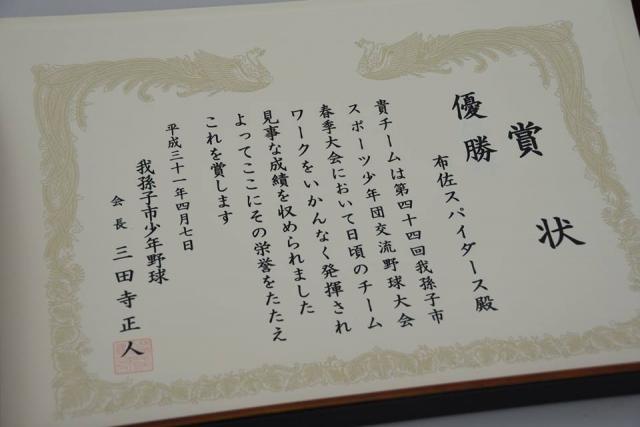 賞状
優勝
布佐スパイダース殿
貴チームは第四十四回我孫子市
スポーツ少年団交流野球大会
春季大会において日頃のチーム
ワークをいかんなく発揮され
見事な成績を収められました
よってここにその栄誉をたたえ
これを賞します
平成三十一年四月七日
我孫子市少年野球
会長 三田寺正人